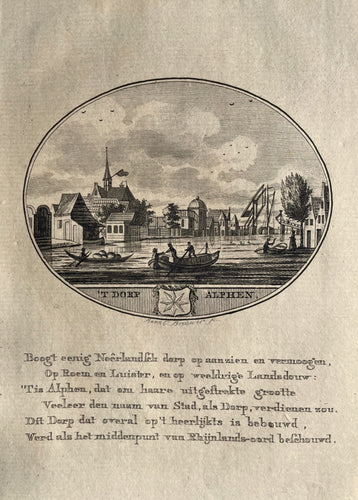 'T DORP ALPHEN.
Boogt eenig Neêrlandsch dorp op aanzien en vermoogen,
Op Roem en Luister, en op weeldrige Landsdouw:
'Tis Alphen, dat om haare uitgestrekte grootte
Veeleer den naam van Stad, als Dorp, verdienen zou.
Dit Dorp dat overal op't heerlijkts is bebouwd,
Werd als het middenpunt van Rhijnlands-oord beschouwd.